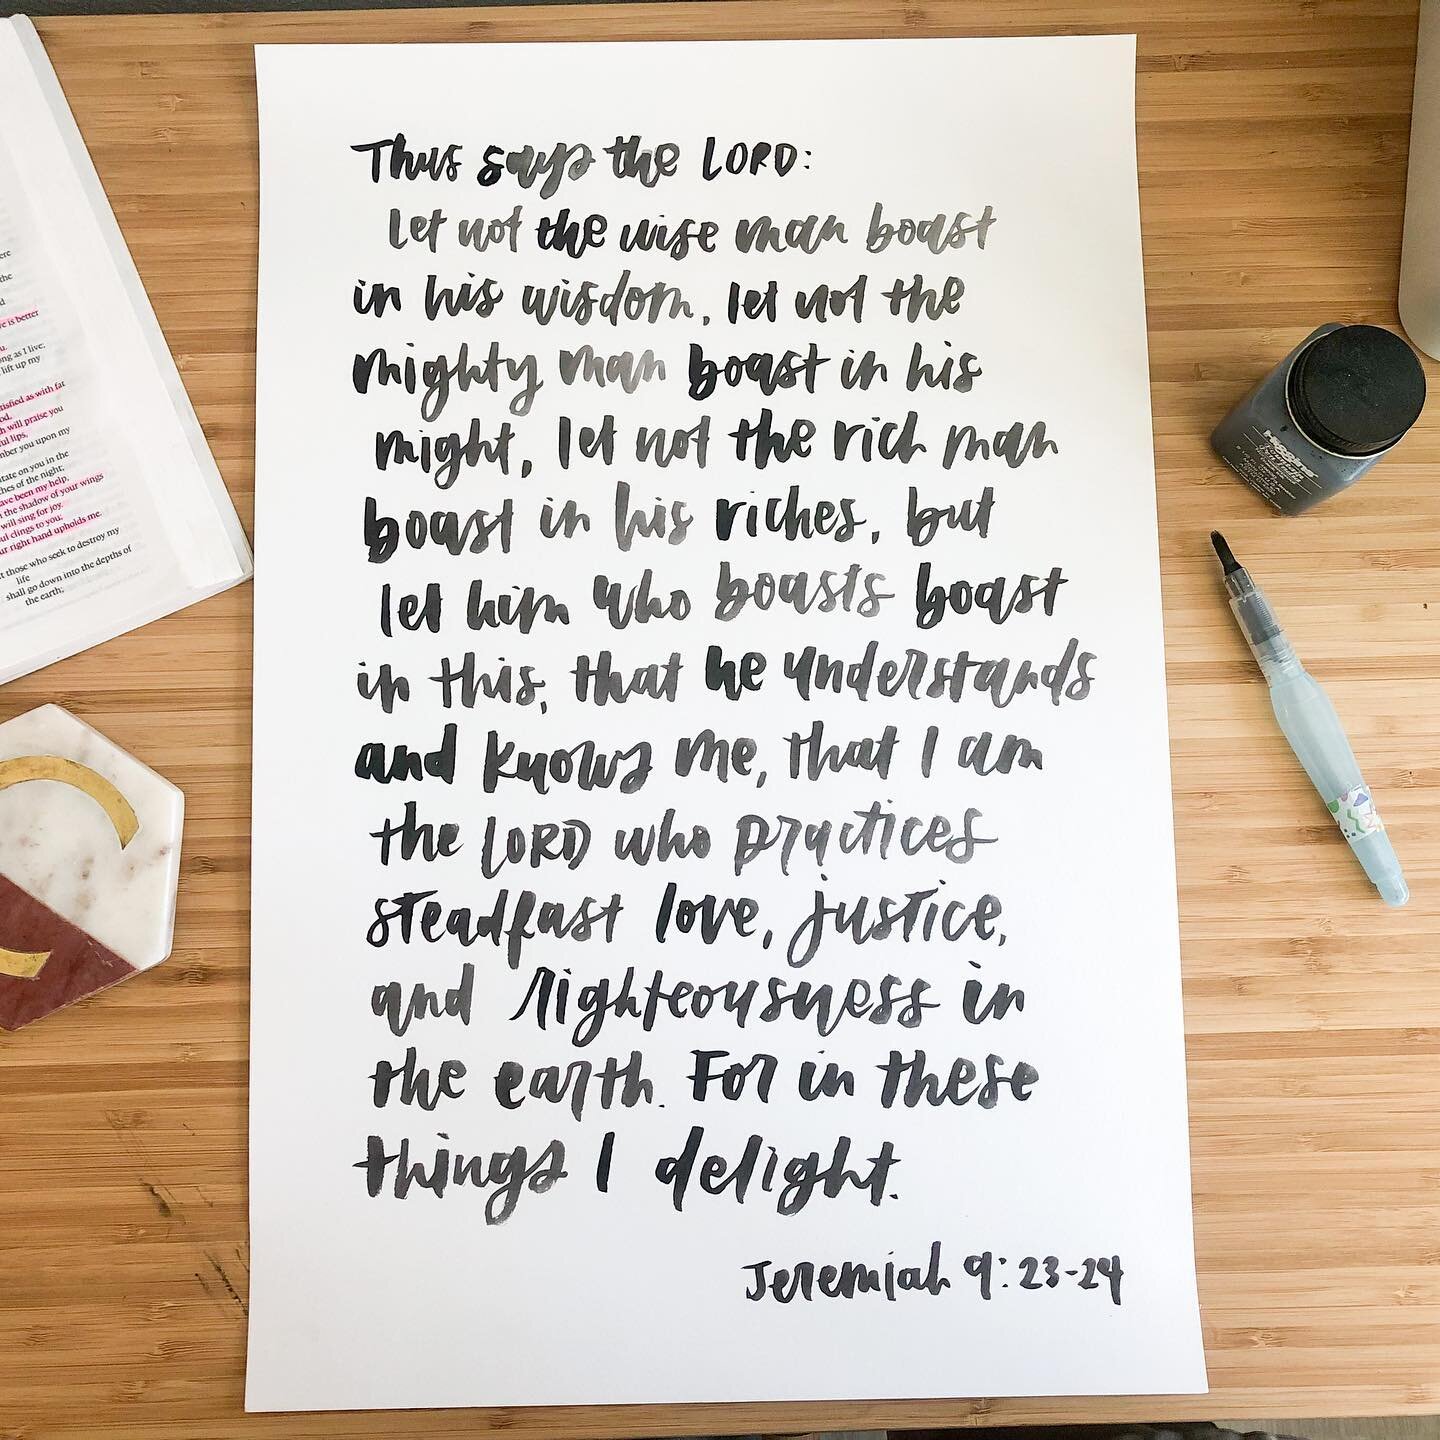 Thus says the LORD:
Let not the wise man boast
in his wisdom, let not the
mighty man boast in his
might, let not the rich man
boast in his riches, but
let him who boasts boast
in this, that he understands
and knows me, that I am
the LORD who practices
steadfast love, justice,
and righteousness in
the earth. For in these
things I delight.
Jeremiah 9:23-24
ere
the
d
ve is better
u.
ng as I live;
lift up my
tisfied as with fat
od,
th will praise you
ful lips,
mber you upon my
itate on you in the
ches of the night;
ave been my help,
n the shadow of your wings
will sing for joy.
ul clings to you;
ur right hand upholds me.
t those who seek to destroy my
life
shall go down into the depths of
the earth;